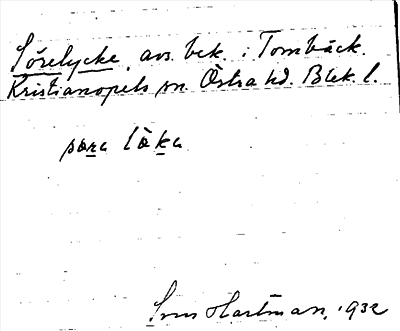 Sörelycke, avs. bek. i Tornbäck.
Kristianopels sn. Östra hd. Blek. l.
Sven Hartman, 1932